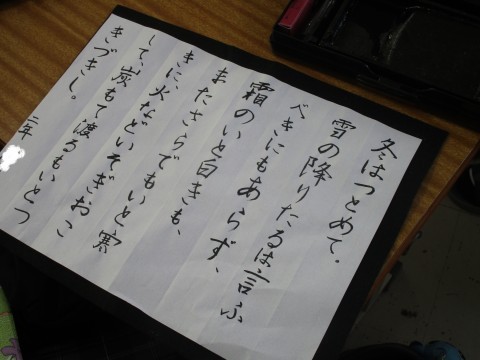 冬はつとめて。
雪の降りたるは言ふ
べきにもあらず、
霜のいと白きも、
またさらでもいと寒
きに、火などいそぎおこ
して、炭もて渡るもいとつ
きづきし。
二年